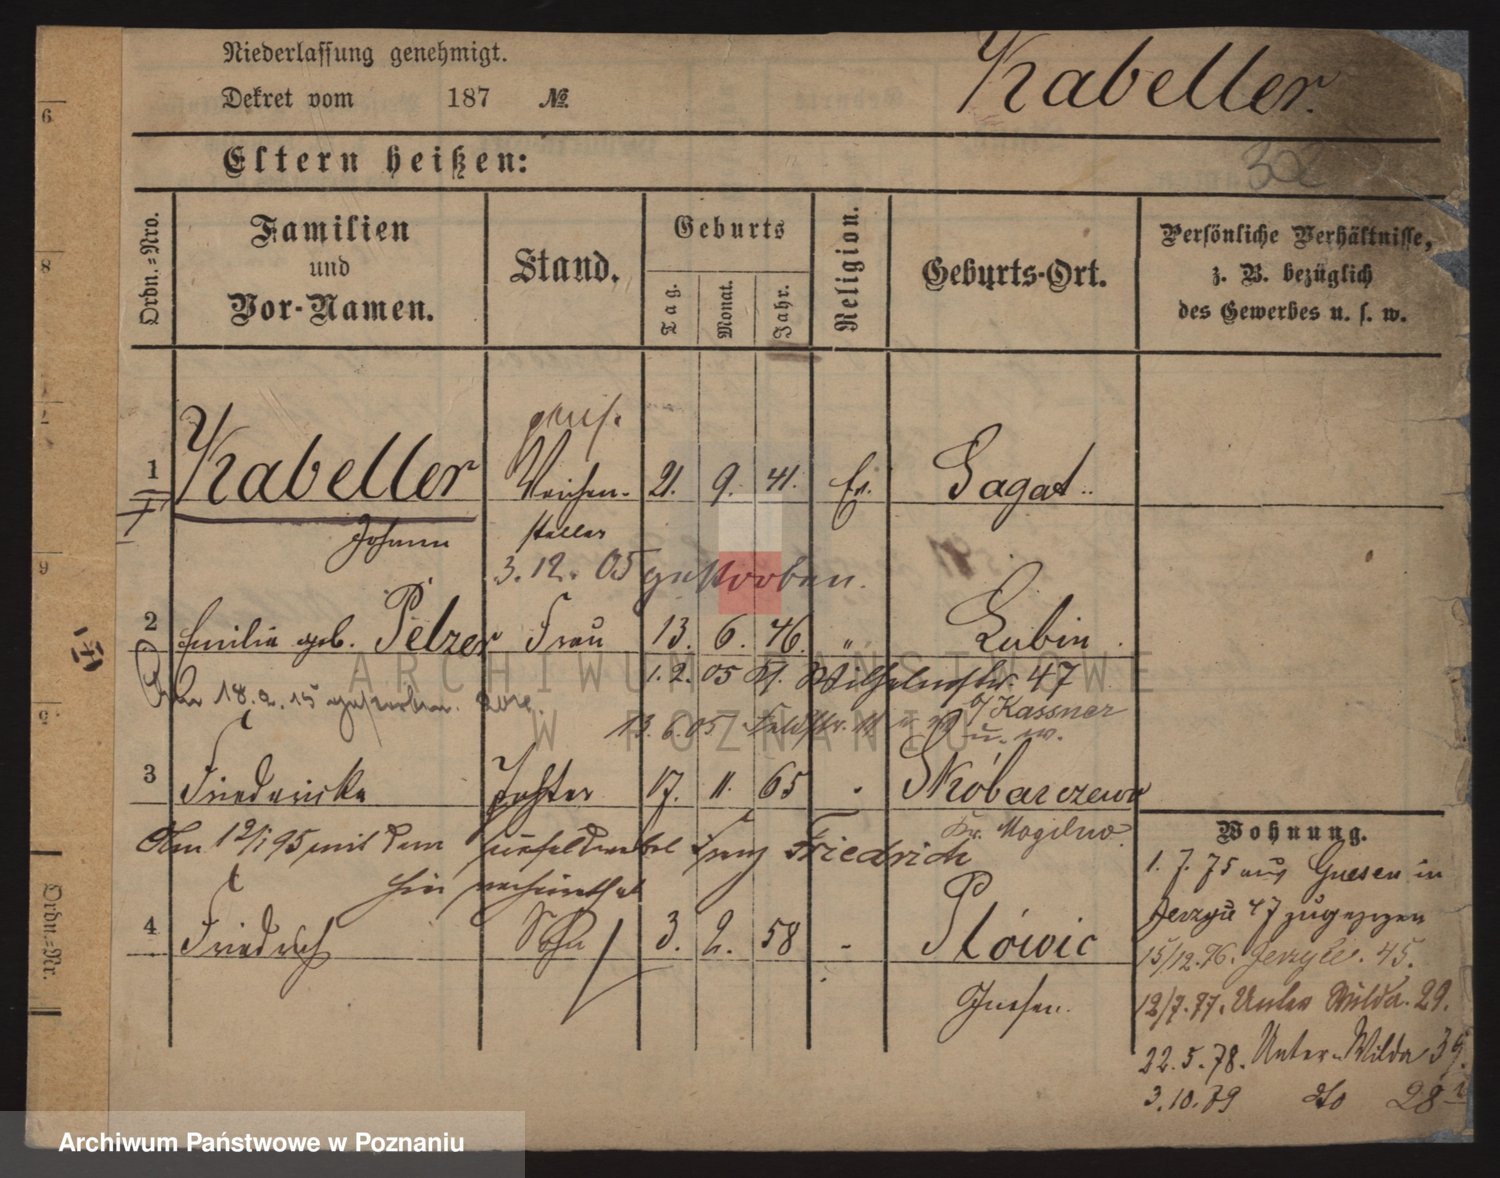 Niederlassung genehmigt.
Kabeller.
Dekret vom 187 №
Eltern heißen:
302
Ordn.-Nro.
Familien
und
Vor-Namen.
Stand.
Geburts
Tag.
Monat.
Jahr.
Religion.
Geburts-Ort.
Persönliche Verhältnisse,
z. B. bezüglich
des Gewerbes u. s. w.
1 Kabeller Weichen- 21. 9. 41. Ev. Sagat
Johann steller
3. 12. 05 gestorben.
2 Emilie geb. Pelzer Frau 13. 6. 46. " Lubin
1. 2. 05 Wilhelmstr. 47
18.2.15 gestorben.
13. 6. 05 Feldstr. b/ Kassner
u. w.
3 Friedericke Tochter 17. 11. 65 Skóbarczewo
Kr. Mogilno.
Am 12/1 95 mit dem Franz Friedrich
hier verheirathet
4 Friedrich Sohn 3. 2. 58 - Plówic
Gnesen.
Wohnung.
1. 7. 75 aus Gnesen in
Jerzyce 47 zugezogen
15/12. 76. Jerzyce. 45.
12/7. 77. Unter Wilda. 29.
22. 5. 78. Unter-Wilda 35.
3. 10. 79 dto 28
6
8
9
Ordn.-Nr.
ARCHIWUM PAŃSTWOWE
W POZNANIU
Archiwum Państwowe w Poznaniu